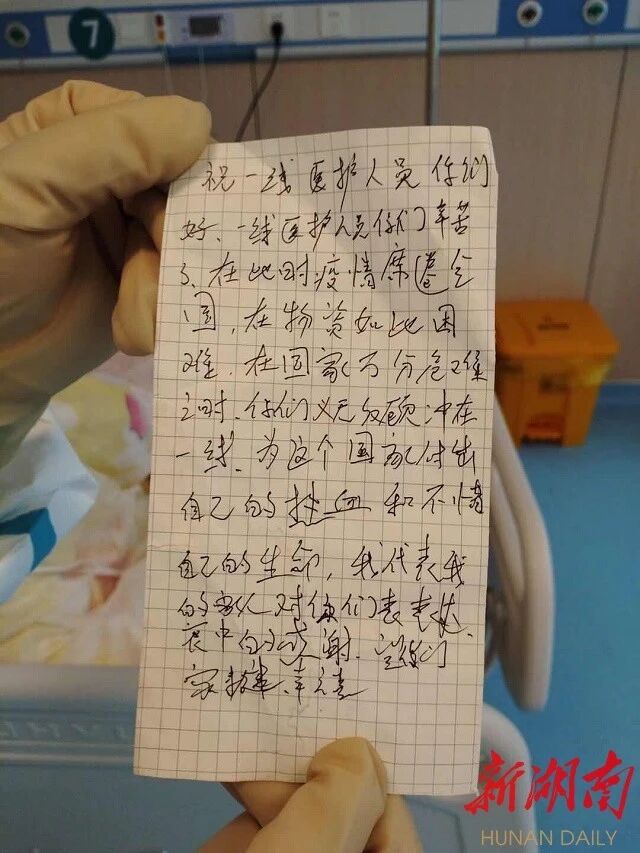 7
祝一线医护人员你们
好、一线医护人员你们辛苦
了、在此时疫情席卷全
国，在物资如此困
难．在国家万分危难
之时、你们义无反顾冲在
一线．为这个国家付出
自己的热血和不惜
自己的生命，我代表我
的家人对你们表表达
衷中的感谢．
家
新湖南
HUNAN DAILY